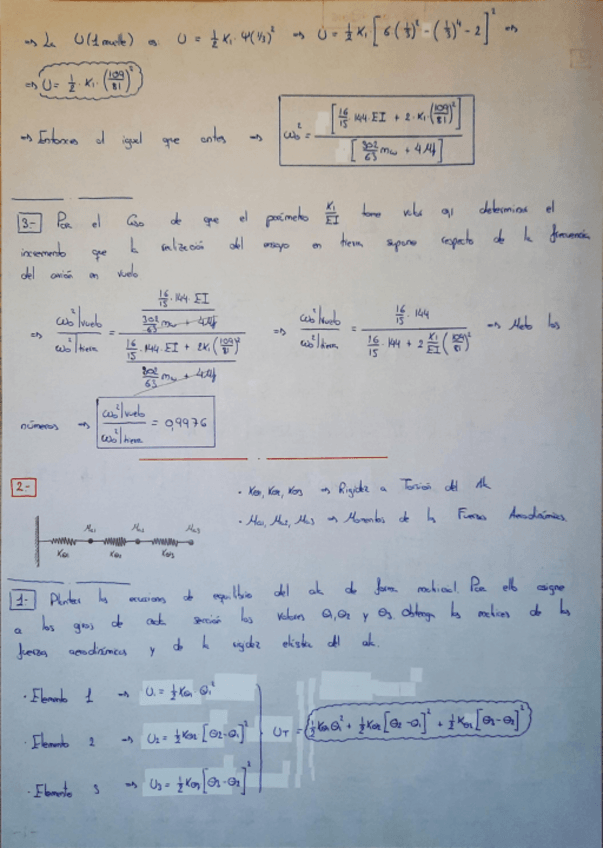 ⇒ La U(1 muelle) es U = 1/2 K₁·Ψ(1/3)² ⇒ U = 1/2 K₁·[6(1/3)² - (1/3)⁴ - 2]² ⇒
⇒ U = 1/2·K₁·(109/81)²
⇒ Entonces al igual que antes ⇒ ω₀² = [16/15·144·EI + 2·K₁·(109/81)²] / [302/63 mω + 4Mf]
3.- Para el Caso de que el parámetro K₁/EI tome valor 0,1 determinar el
incremento que la realización del ensayo en tierra supone respecto de la frecuencia
del avión en vuelo
⇒ ω₀²|vuelo / ω₀²|tierra = (16/15·144·EI / (302/63 mω + 4Mf)) / ((16/15·144·EI + 2K₁(109/81)²) / (302/63 mω + 4Mf)) ⇒ ω₀²|vuelo / ω₀²|tierra = (16/15·144) / (16/15·144 + 2 K₁/EI (109/81)²) ⇒ Meto los
números ⇒ ω₀²|vuelo / ω₀²|tierra = 0,9976
2.-
· Kθ1, Kθ2, Kθ3 ⇒ Rigidez a Torsión del Ala
· Ma1, Ma2, Ma3 ⇒ Momentos de las Fuerzas Aerodinámicas.
Ma1 Ma2 Ma3
Kθ1 Kθ2 Kθ3
1.- Plantear las ecuaciones de equilibrio del ala de forma matricial. Para ello asigne
a los giros de cada sección los valores θ1, θ2 y θ3. Obtenga las matrices de las
fuerzas aerodinámicas y de la rigidez elástica del ala.
· Elemento 1 ⇒ U₁ = 1/2 Kθ1 θ1²
· Elemento 2 ⇒ U₂ = 1/2 Kθ2 [θ2-θ1]²
UT = 1/2 Kθ1 θ1² + 1/2 Kθ2 [θ2-θ1]² + 1/2 Kθ3 [θ3-θ2]²
· Elemento 3 ⇒ U₃ = 1/2 Kθ3 [θ3-θ2]²